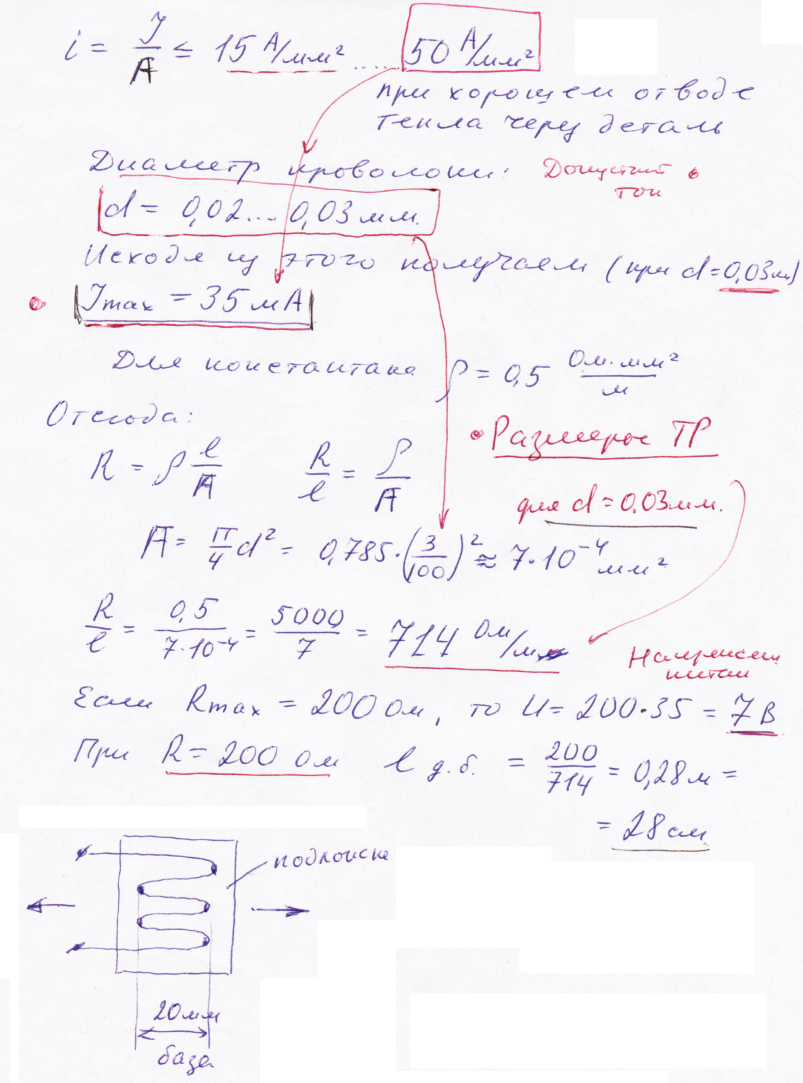 i = J/A ≤ 15 А/мм² ..... 50 А/мм²
при хорошем отводе
тепла через деталь
Диаметр проволоки:
Допустим. ток
d = 0,02... 0,03 мм.
Исходя из этого получаем (при d=0,03м)
Jmax = 35 мА
Для константана ρ = 0,5 Ом·мм²/м
Отсюда:
• Размеры ТР
R = ρ l/A R/l = ρ/A
для d = 0,03 мм.
A = π/4 d² = 0,785·(3/100)² ≈ 7·10⁻⁴ мм²
R/l = 0,5/7·10⁻⁴ = 5000/7 = 714 Ом/м
Если Rmax = 200 Ом, то U = 200·35 = 7 В
При R = 200 Ом l д.б. = 200/714 = 0,28 м =
= 28 см
20 мм
база